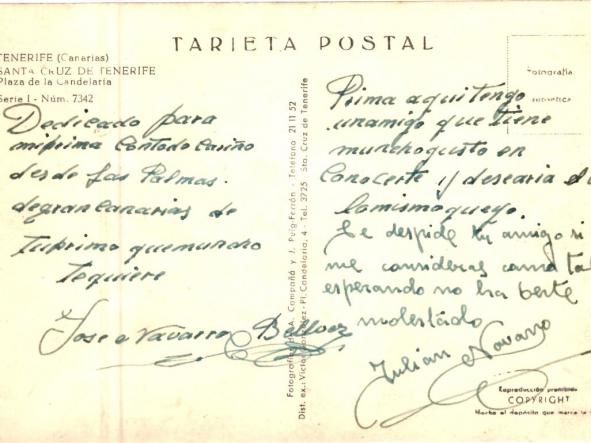 TARJETA POSTAL
TENERIFE (Canarias)
SANTA CRUZ DE TENERIFE
Plaza de la Candelaria
Serie I - Núm. 7342
Dedicado para
miprima Contodo Cariño
desde Las Palmas.
degranCanarias de
tuprimo quemuncho
tequiere
Jose Navarro
Fotografías de A. Campañá y J. Puig-Ferrán - Teléfono 21 11 52
Dist. ex.: Candelaria, 4 - Tel. 3725 - Sta. Cruz de Tenerife
Fotografía
auténtica
Prima aquitengo
unamigo que tiene
munchogusto en
Conocerte y desearia
lomismoqueyo.
Se despide tu amigo si
me consideras como tal
esperando no ha berte
molestádo
Julian Navarro
Reproducción prohibida
COPYRIGHT
Hecho el depósito que marca la